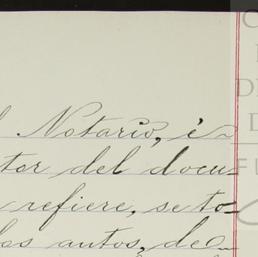 l Notario, é
tor del docu-
refiere, se to-
las autos, de